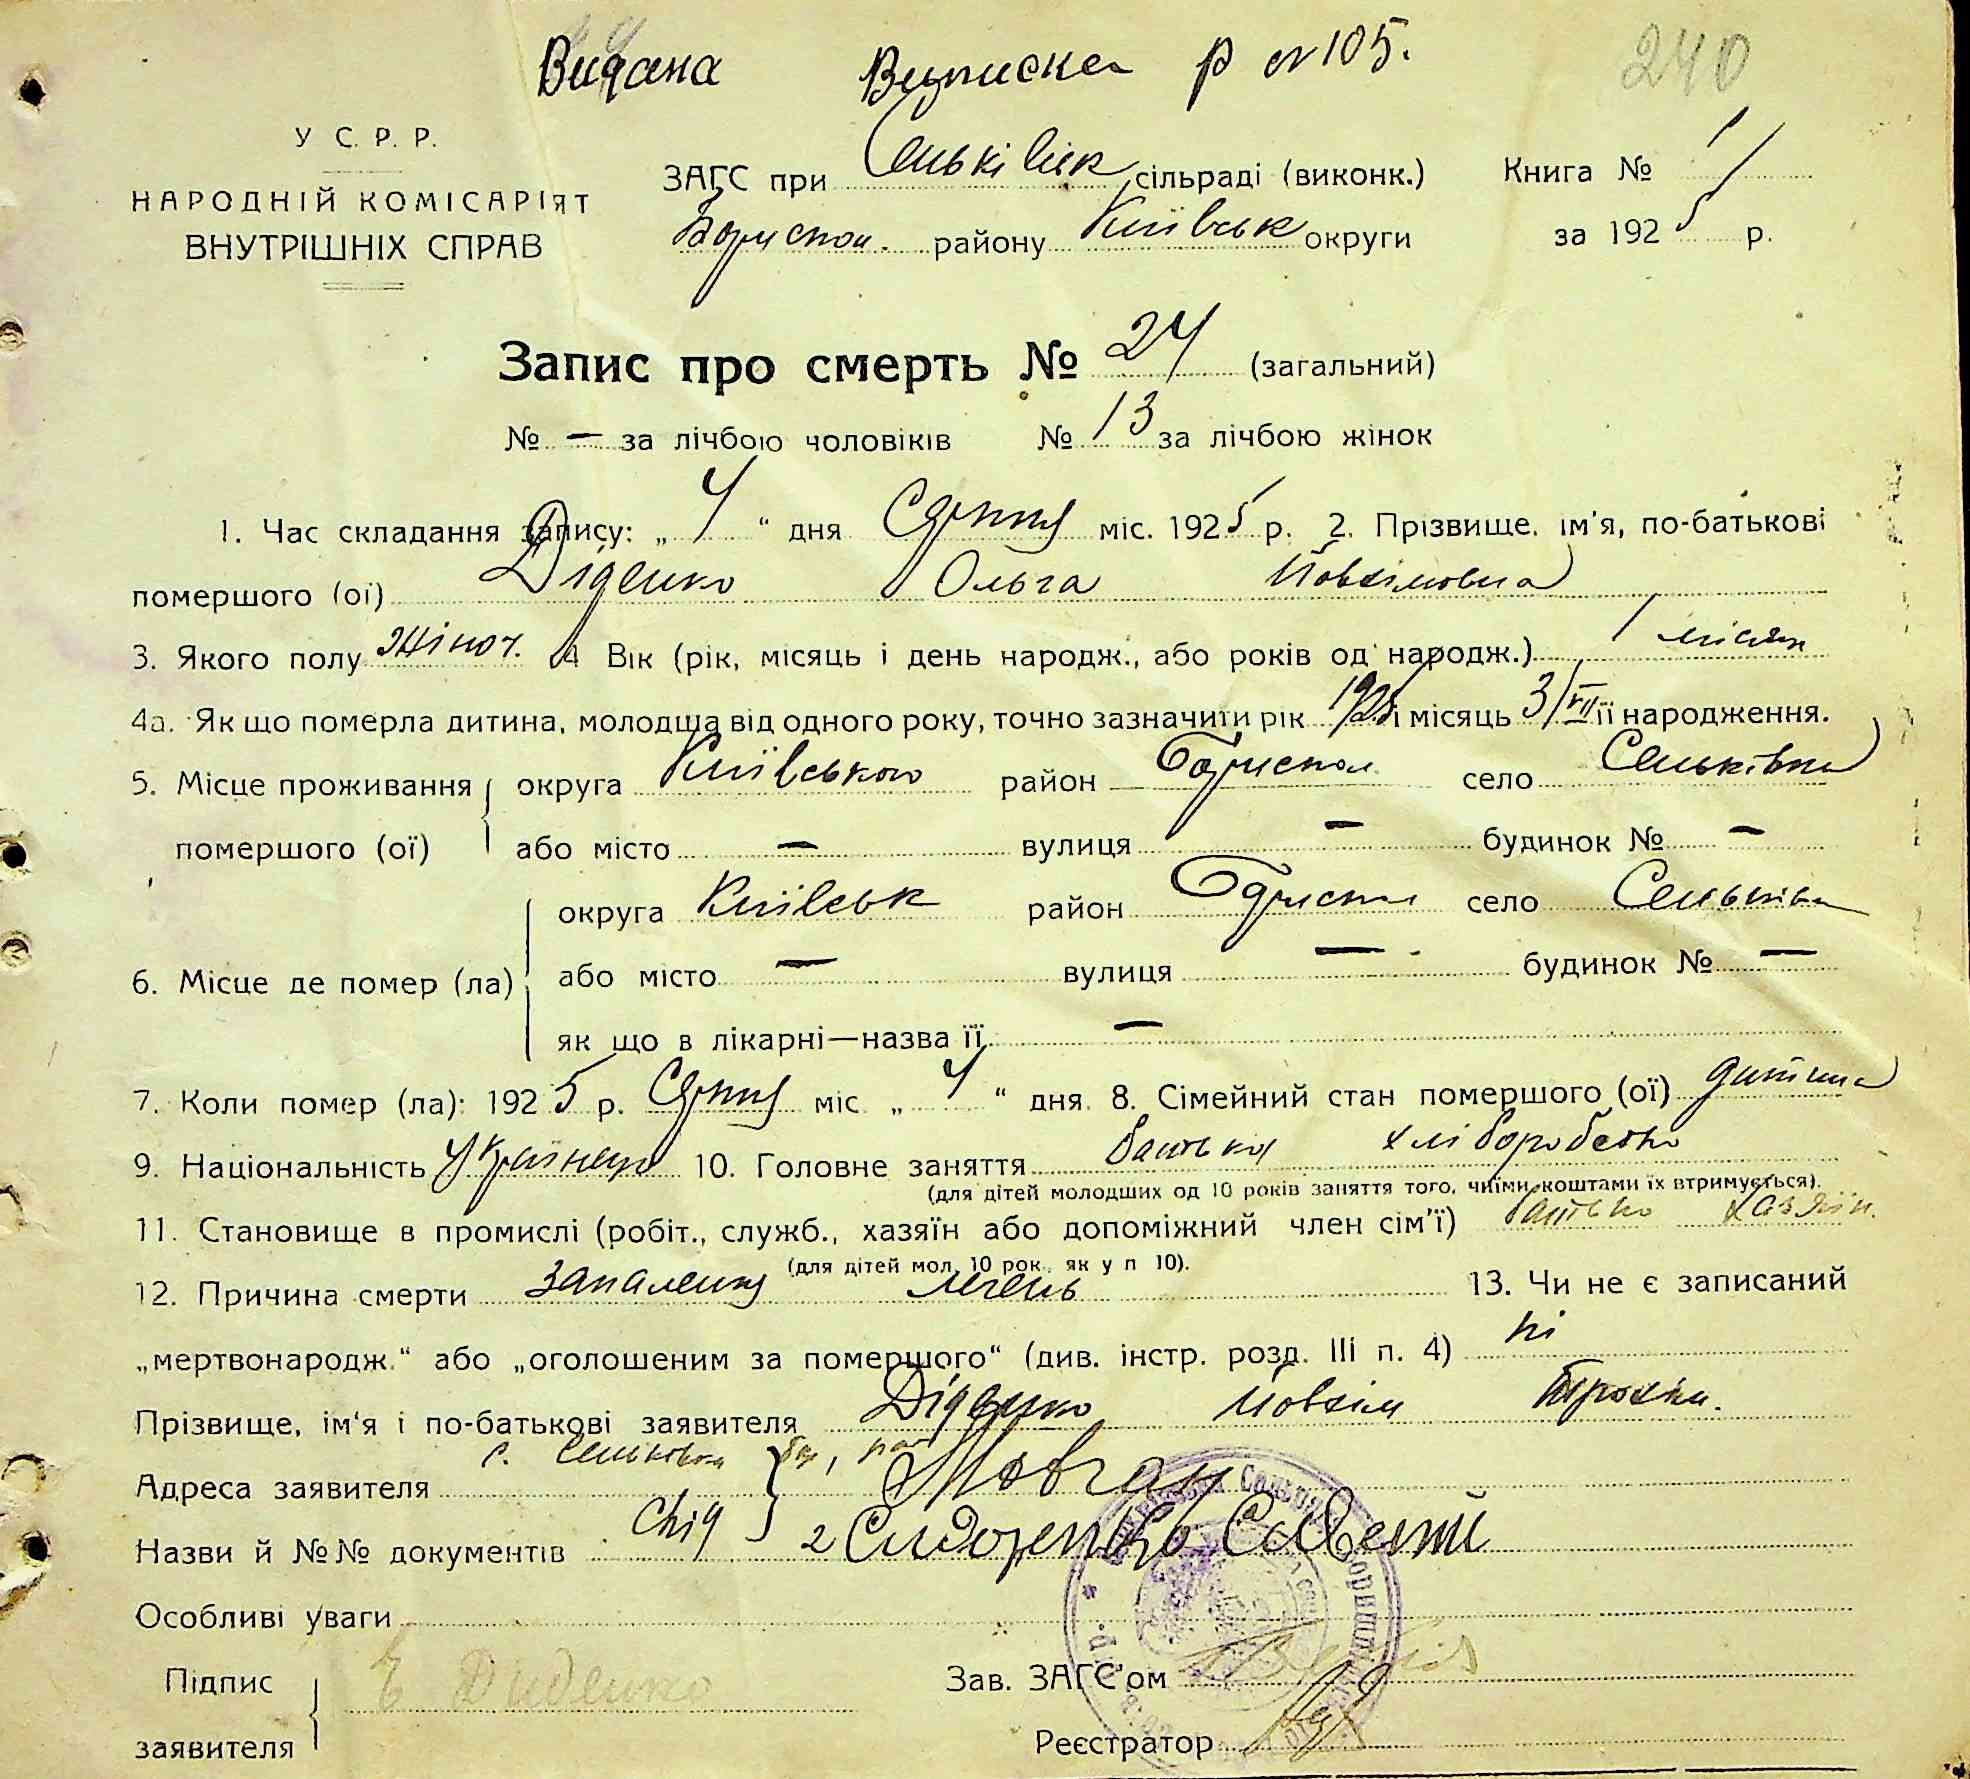 Видана Виписка р № 105.
240
У С. Р. Р.
НАРОДНІЙ КОМІСАРІЯТ
ВНУТРІШНІХ СПРАВ
ЗАГС при Сеньківськ сільраді (виконк.)
Бориспол. району Київськ округи
Книга № 1
за 1925 р.
Запис про смерть № 24 (загальний)
№ — за лічбою чоловіків № 13 за лічбою жінок
1. Час складання запису: „ 4 “ дня Серпня міс. 1925 р. 2. Прізвище, ім'я, по-батькові
помершого (ої) Діденко Ольга Йовхимовна
3. Якого полу жіноч. 4 Вік (рік, місяць і день народж., або років од народж.) 1 місяць
4а. Як що померла дитина, молодша від одного року, точно зазначити рік 1925 і місяць 3/VII її народження.
5. Місце проживання помершого (ої) округа Київського район Бориспол село Сеньківка
або місто — вулиця — будинок № —
6. Місце де помер (ла) округа Київськ район Бориспол село Сеньківка
або місто — вулиця — будинок № —
як що в лікарні—назва її —
7. Коли помер (ла): 1925 р. Серпня міс. „ 4 “ дня 8. Сімейний стан помершого (ої) дитина
9. Національність Українець 10. Головне заняття батька хліборобство
(для дітей молодших од 10 років заняття того, чиїми коштами їх втримується).
11. Становище в промислі (робіт., служб., хазяїн або допоміжний член сім'ї) батько хазяїн.
(для дітей мол. 10 рок., як у п 10).
12. Причина смерти запалення легень 13. Чи не є записаний
„мертвонародж.“ або „оголошеним за помершого“ (див. інстр. розд. III п. 4) ні
Прізвище, ім'я і по-батькові заявителя Діденко Йовхім Трохим.
Адреса заявителя с. Сеньківка Мовчан
Назви й №№ документів Свід 2 Сидоренко Савети
Особливі уваги
Підпис заявителя Е Диденко
Зав. ЗАГС'ом
Реєстратор